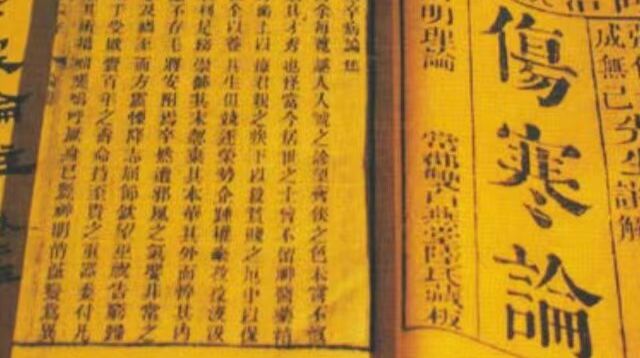 成無己先生註解
傷寒論
明理論
燕堂陸氏藏板
卒病論集
余每覽越人入虢之診望齊侯之色未嘗不慨
其才秀也怪當今居世之士曾不留神醫藥精
上以療君親之疾下以救貧賤之厄中以保
全以養其生但競逐榮勢企踵權豪孜孜汲汲
利是務崇飾其末忽棄其本華其外而悴其內
存毛將安附焉卒然遭邪風之氣嬰非常之
及禍至而方震慄降志屈節欽望巫祝告窮歸
手受敗賚百年之壽命持至貴之重器委付凡
嗚呼厥身已斃神明消滅變為異
論